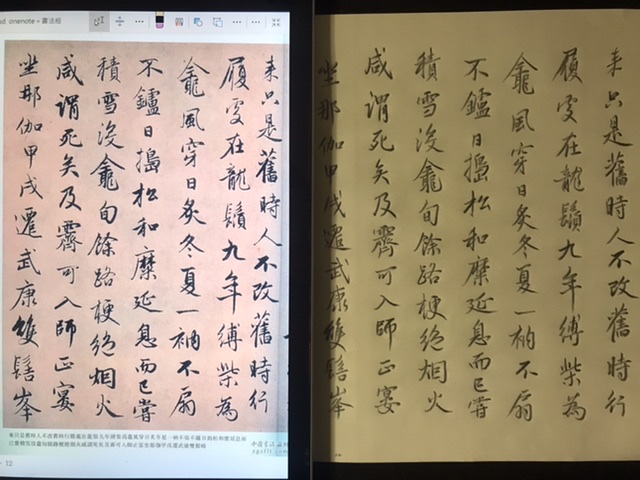 onenote
来只是舊時人不改舊時行
履處在龍鬚九年縛柴為
龕風穿日炙冬夏一衲不扇
不鑪日搗松和糜延息而已嘗
積雪沒龕旬餘路梗絕烟火
咸謂死矣及霽可入師正宴
坐那伽甲戌遷武康雙髻峯
12
来只是舊時人不改舊時行
履處在龍鬚九年縛柴為
龕風穿日炙冬夏一衲不扇
不鑪日搗松和糜延息而已嘗
積雪沒龕旬餘路梗絕烟火
咸謂死矣及霽可入師正宴
坐那伽甲戌遷武康雙髻峯